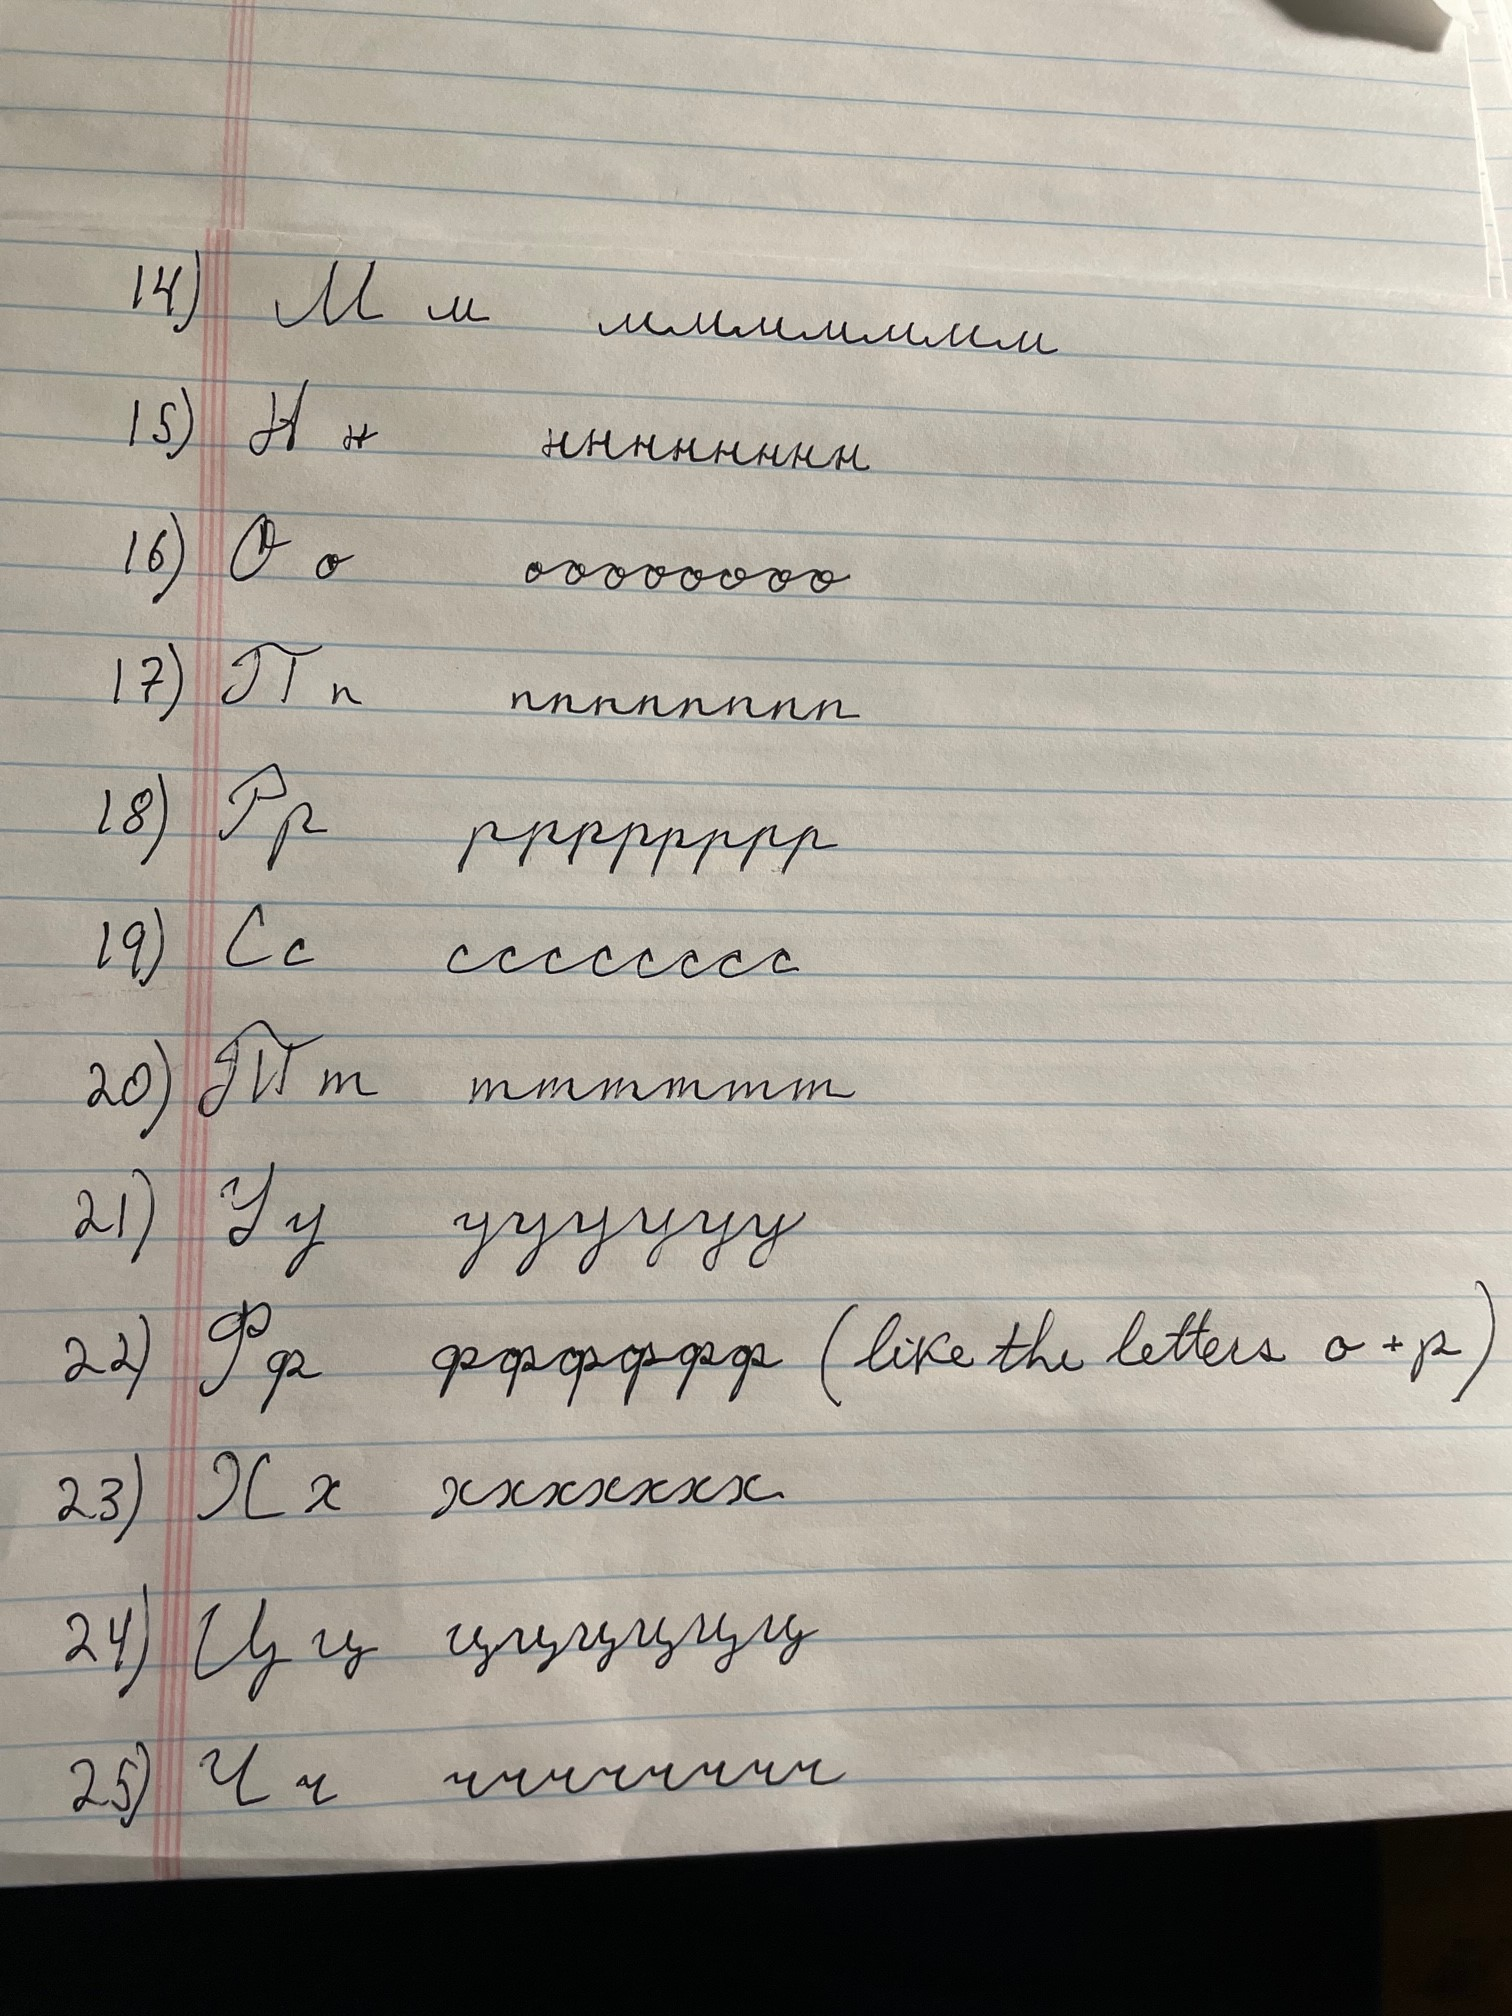 14) М м ммммммм
15) Н н нннннннн
16) О о ооооооооо
17) П п пппппппп
18) Р р рррррррр
19) С с сссссссс
20) Т т тттттт
21) У у уууууу
22) Ф ф фффффф (like the letters o + p)
23) Х х ххххххх
24) Ц ц цццццц
25) Ч ч ччччччччч